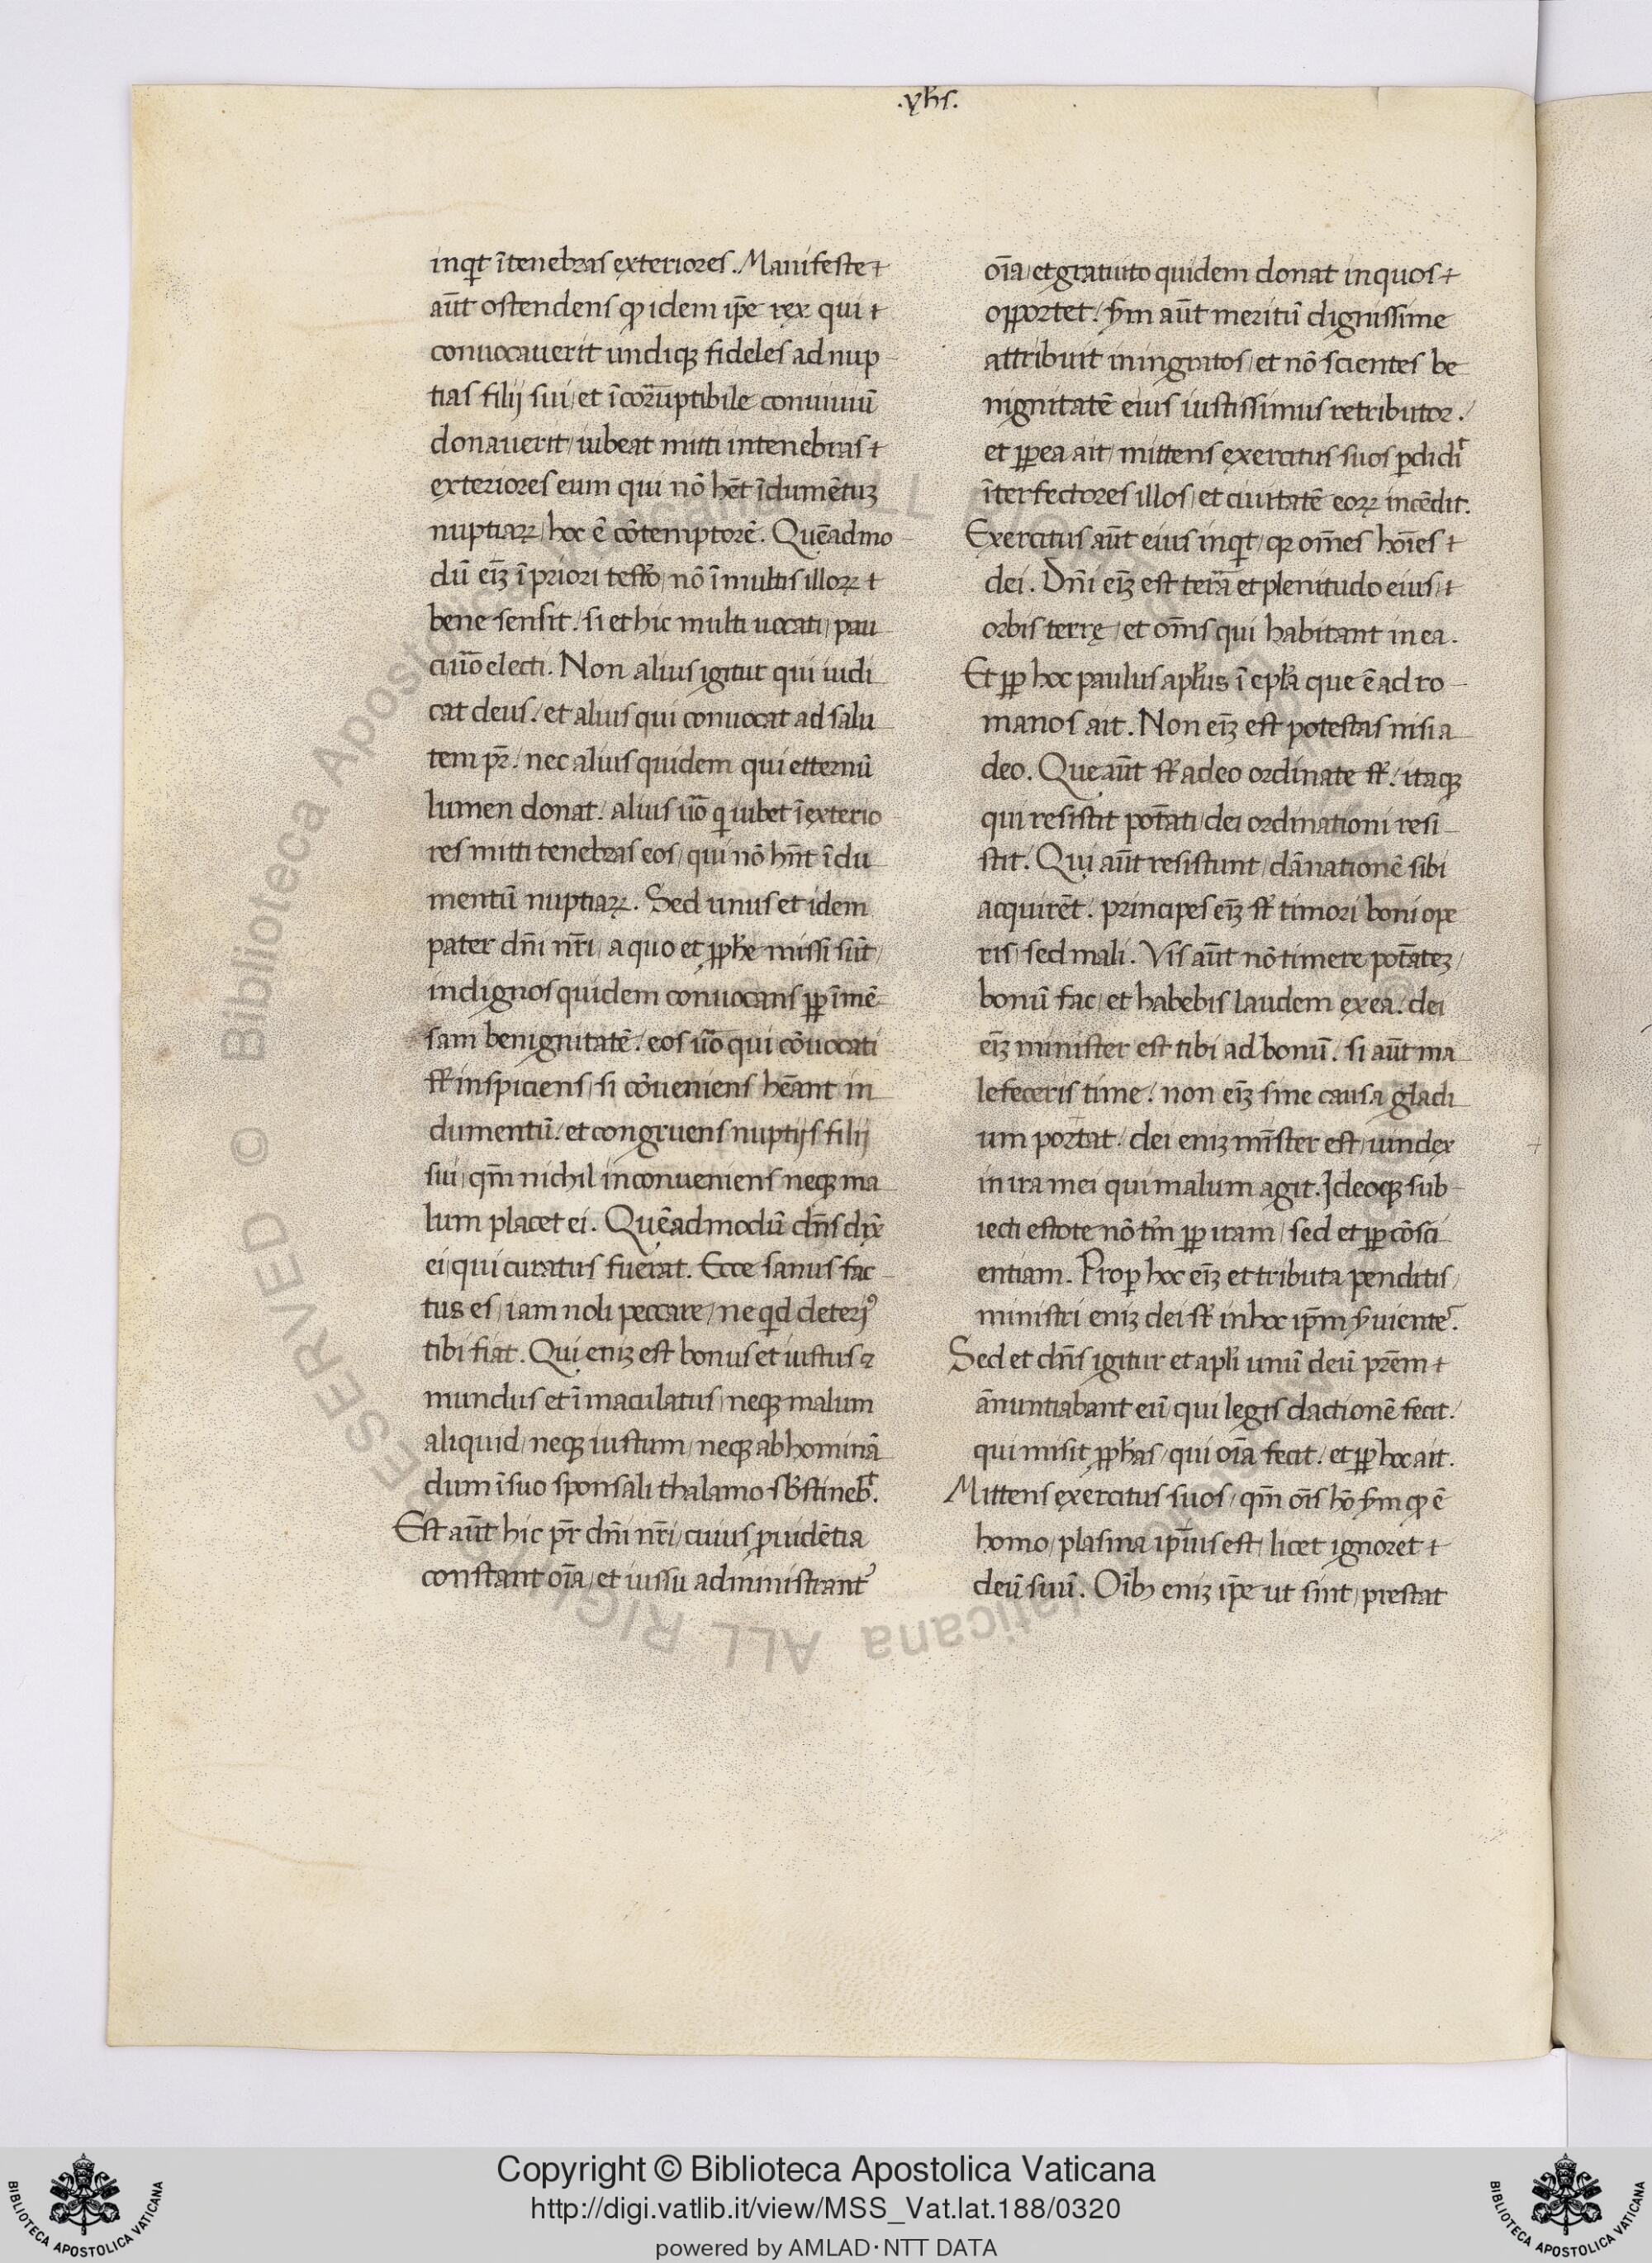 .yh̄s.
inq̄t ītenebras exteriores. Manifeste
aūt ostendens ꝙ idem ip̄e rex qui
conuocauerit undiqꝫ fideles ad nup
tias filij sui, et īcorruptibile conuiuiū
donauerit, iubeat mitti in tenebras
exteriores eum qui nō hēt īdumētuꝫ
nuptiaꝝ, hoc ē cōtemptorē. Quēadmo
dū eīꝫ ī priori testo, nō ī multis illoꝝ
bene sensit. si et hic multi uocati, pau
ci ūo electi. Non alius igitur qui iudi
cat deus. et alius qui conuocat ad salu
tem pr̄. nec alius quidem qui etternū
lumen donat. alius ūo q iubet ī exterio
res mitti tenebras eos, qui nō hn̄t īdu
mentū nuptiaꝝ. Sed unus et idem
pater dn̄i nr̄i, a quo et ꝓph̄e missi sūt,
indignos quidem conuocans ꝓp īmē
sam benignitatē. eos ūo qui cōuocati
st̄ inspiciens, si cōueniens hēant in
dumentū. et congruens nuptijs filij
sui, qm̄ nichil inconueniens neqꝫ ma
lum placet ei. Quēadmodū dn̄s dix̄
ei, qui curatus fuerat. Ecce sanus fac
tus es, iam noli peccare, ne qd deteriꝰ
tibi fiat. Qui eniꝫ est bonus et iustus ⁊
mundus et īmaculatus, neqꝫ malum
aliquid, neqꝫ iustum, neqꝫ abhominā
dum ī suo sponsali thalamo sb̄stineb̄t.
Est aūt hic pr̄ dn̄i nr̄i, cuius ꝓuidētia
constant oīa, et iussu administrant᷑
oīa, et gratuito quidem donat in quos
opportet. s̄m aūt meritū dignissime
attribuit in ingratos, et nō scientes be
nignitatē eius iustissimus retributor.
et ꝓpea ait, mittens exercitus suos ꝑdidit
īterfectores illos, et ciuitatē eoꝝ incēdit.
Exercitus aūt eius inq̄t, qꝛ om̄es hoīes
dei. Dn̄i eīꝫ est terra et plenitudo eius,
orbis terrę, et om̄s qui habitant in ea.
Et ꝓp hoc paulus apl̄us ī epl̄a que ē ad ro
manos ait. Non eīꝫ est potestas nisi a
deo. Que aūt st̄ a deo ordinate st̄. itaqꝫ
qui resistit pot̄ati, dei ordinationi resi
stit. Qui aūt resistunt, dānationē sibi
acquirēt. principes eīꝫ st̄ timori boni ope
ris, sed mali. Vis aūt nō timere pot̄ateꝫ,
bonū fac, et habebis laudem ex ea. dei
eīꝫ minister est tibi ad bonū. si aūt ma
lefeceris time. non eīꝫ sine causa gladi
um portat. dei eniꝫ mīster est, uindex
in ira mei qui malum agit. Ideoqꝫ sub
iecti estote nō tm̄ ꝓp iram, sed et ꝓp cōsci
entiam. Prop hoc eīꝫ et tributa penditis,
ministri eniꝫ dei st̄ in hoc ip̄m s̄uiente᷑.
Sed et dn̄s igitur et apl̄i unū deū pr̄em
ānuntiabant eū, qui legis dactionē fecit.
qui misit ꝓph̄as, qui oīa fecit. et ꝓp hoc ait.
Mittens exercitus suos, qm̄ oīs hō s̄m ꝙ ē
homo, plasma ip̄ius est, licet ignoret
deū suū. Oībꝫ eniꝫ ip̄e ut sint, prestat
© Biblioteca Apostolica Vaticana ALL RIGHTS RESERVED
Copyright © Biblioteca Apostolica Vaticana
http://digi.vatlib.it/view/MSS_Vat.lat.188/0320
powered by AMLAD·NTT DATA
BIBLIOTECA APOSTOLICA VATICANA
BIBLIOTECA APOSTOLICA VATICANA